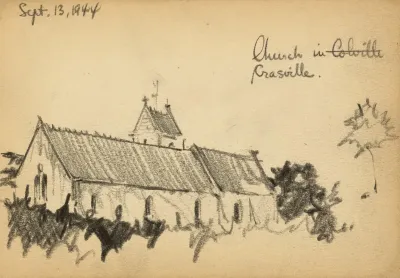 Sept. 13, 1944
Church in Colville
Crasville.